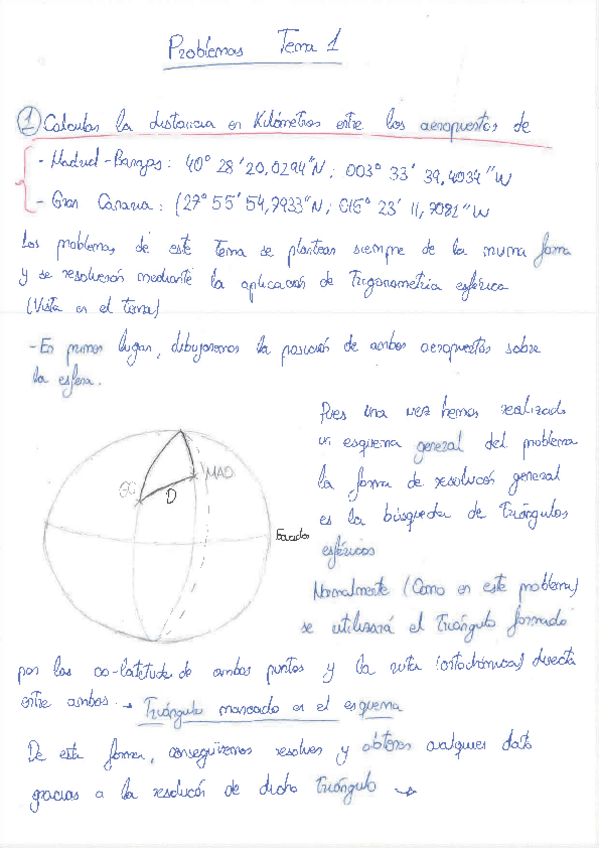 Problemas Tema 1
① Calcular la distancia en Kilómetros entre los aeropuertos de
- Madrid-Barajas: 40° 28' 20,0294"N; 003° 33' 39,4034"W
- Gran Canaria: (27° 55' 54,7933"N; 015° 23' 11,7082"W
Los problemas de este tema se plantean siempre de la misma forma
y se resolverán mediante la aplicación de Trigonometría esférica
(Vista en el tema)
- En primer lugar, dibujaremos la posición de ambos aeropuertos sobre
la esfera.
Pues una vez hemos realizado
un esquema general del problema
la forma de resolución general
es la búsqueda de Triángulos
esféricos
Normalmente (Como en este problema)
se utilizará el Triángulo formado
MAD
GC
D
Ecuador
por las co-latitudes de ambos puntos y la ruta (ortodrómica) directa
entre ambos. → Triángulo marcado en el esquema
De esta forma, conseguiremos resolver y obtener cualquier dato
gracias a la resolución de dicho Triángulo →